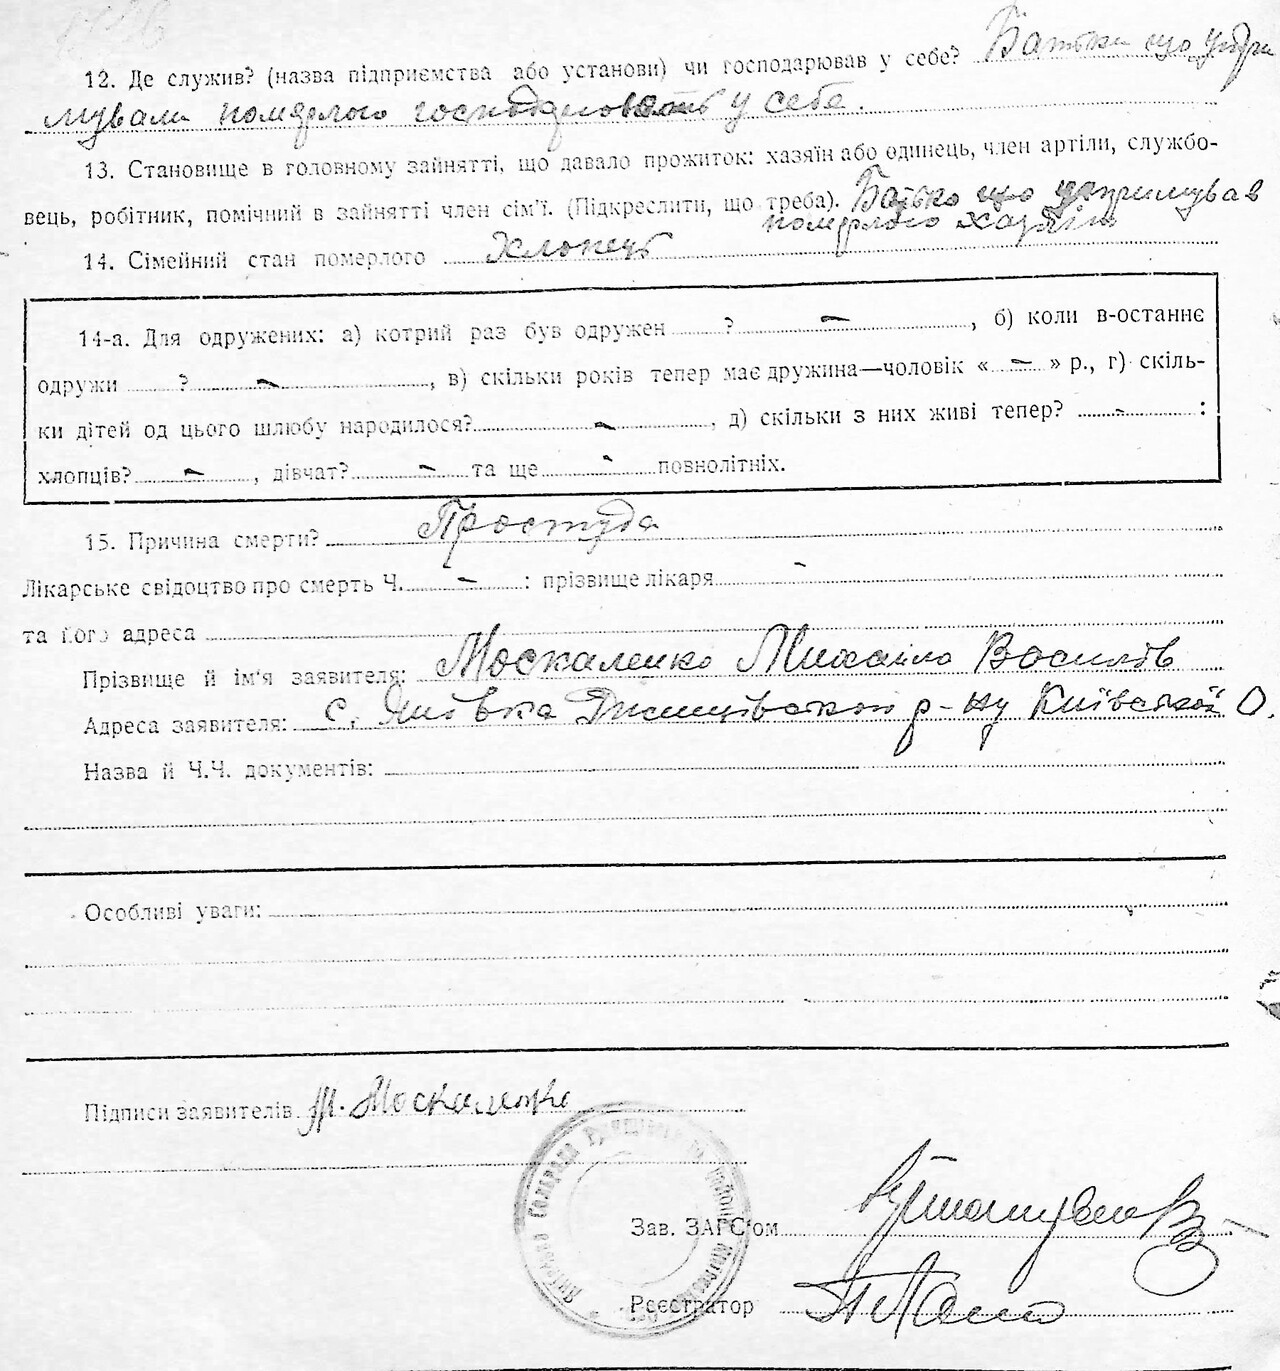 12. Де служив? (назва підприємства або установи) чи господарював у себе? Батьки що утри
мували померлого господарювали у себе.
13. Становище в головному зайнятті, що давало прожиток: хазяїн або одинець, член артіли, службо-
вець, робітник, помічний в зайнятті член сім'ї. (Підкреслити, що треба). Батько що утримував
померлого хазяїн
14. Сімейний стан померлого Хлопець
14-а. Для одружених: а) котрий раз був одружен ? —, б) коли в-останнє
одружи ? —, в) скільки років тепер має дружина—чоловік « — » р., г) скіль-
ки дітей од цього шлюбу народилося? —, д) скільки з них живі тепер? — :
хлопців? —, дівчат? — та ще - повнолітніх.
15. Причина смерти? Простуда
Лікарське свідоцтво про смерть Ч. — : прізвище лікаря -
та його адреса
Прізвище й ім'я заявителя: Москаленко Михайло Василів
Адреса заявителя: с. р-ну Київської О.
Назва й Ч.Ч. документів:
Особливі уваги:
Підписи заявителів М. Москаленко
Зав. ЗАГС'ом
Реєстратор